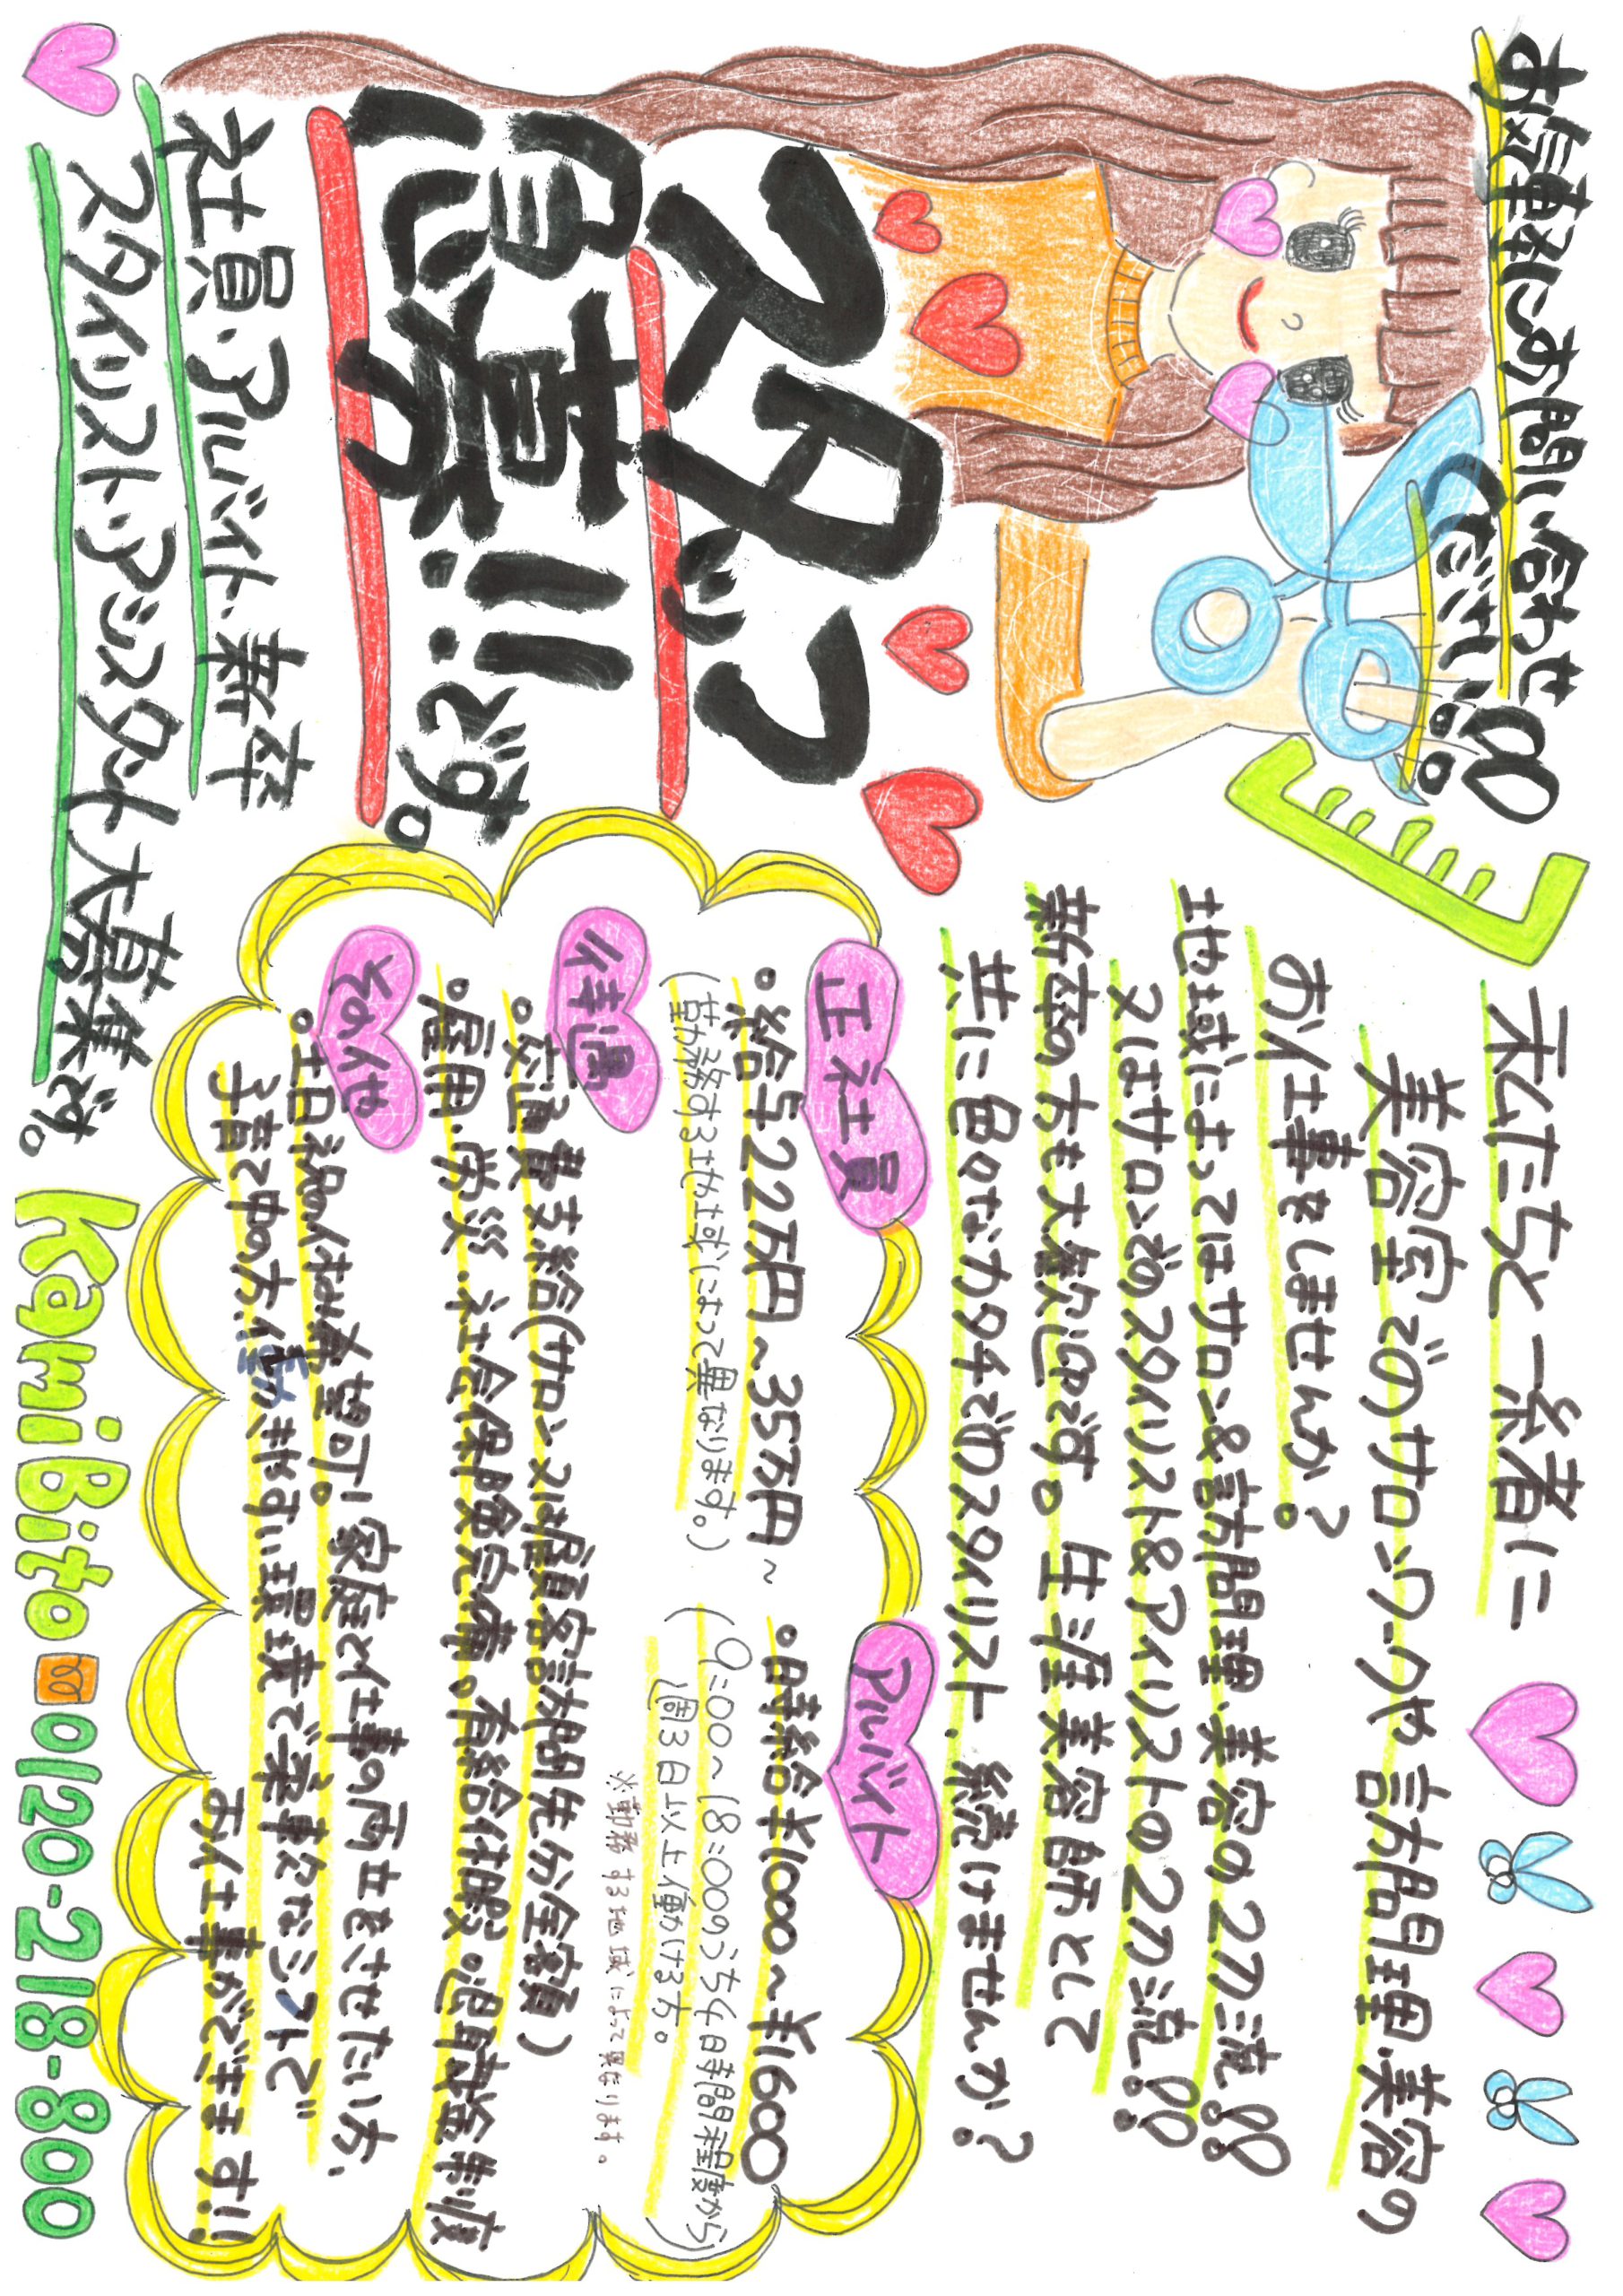 お気軽にお問い合わせ
ください!!。
スタッフ
急募!!です。
社員・アルバイト・新卒
スタイリスト・アシスタント大募集です。
私たちと一緒に
美容室でのサロンワークや訪問理・美容の
お仕事をしませんか?
地域によってはサロン&訪問理・美容の2刀流!!
又はサロンでのスタイリスト&アイリストの2刀流!!
新卒の方も大歓迎です。生涯美容師として
共に色んなカタチでのスタイリスト、続けませんか?
正社員
・給与22万円~35万円~
(勤務する地域によって異なります。)
アルバイト
・時給¥1000~¥1600
(9:00~18:00のうち4時間程度から
週3日以上働ける方。)
※勤務する地域によって異なります。
待遇
・交通費支給(サロン又は顧客訪問先分全額)
・雇用・労災・社会保険完備。有給休暇・退職金制度
その他
・土日祝のお休み希望可。家庭と仕事の両立をさせたい方、
子育て中の方、働きやすい環境で柔軟なシフトで
お仕事ができます!!
KamiBito
0120-218-800